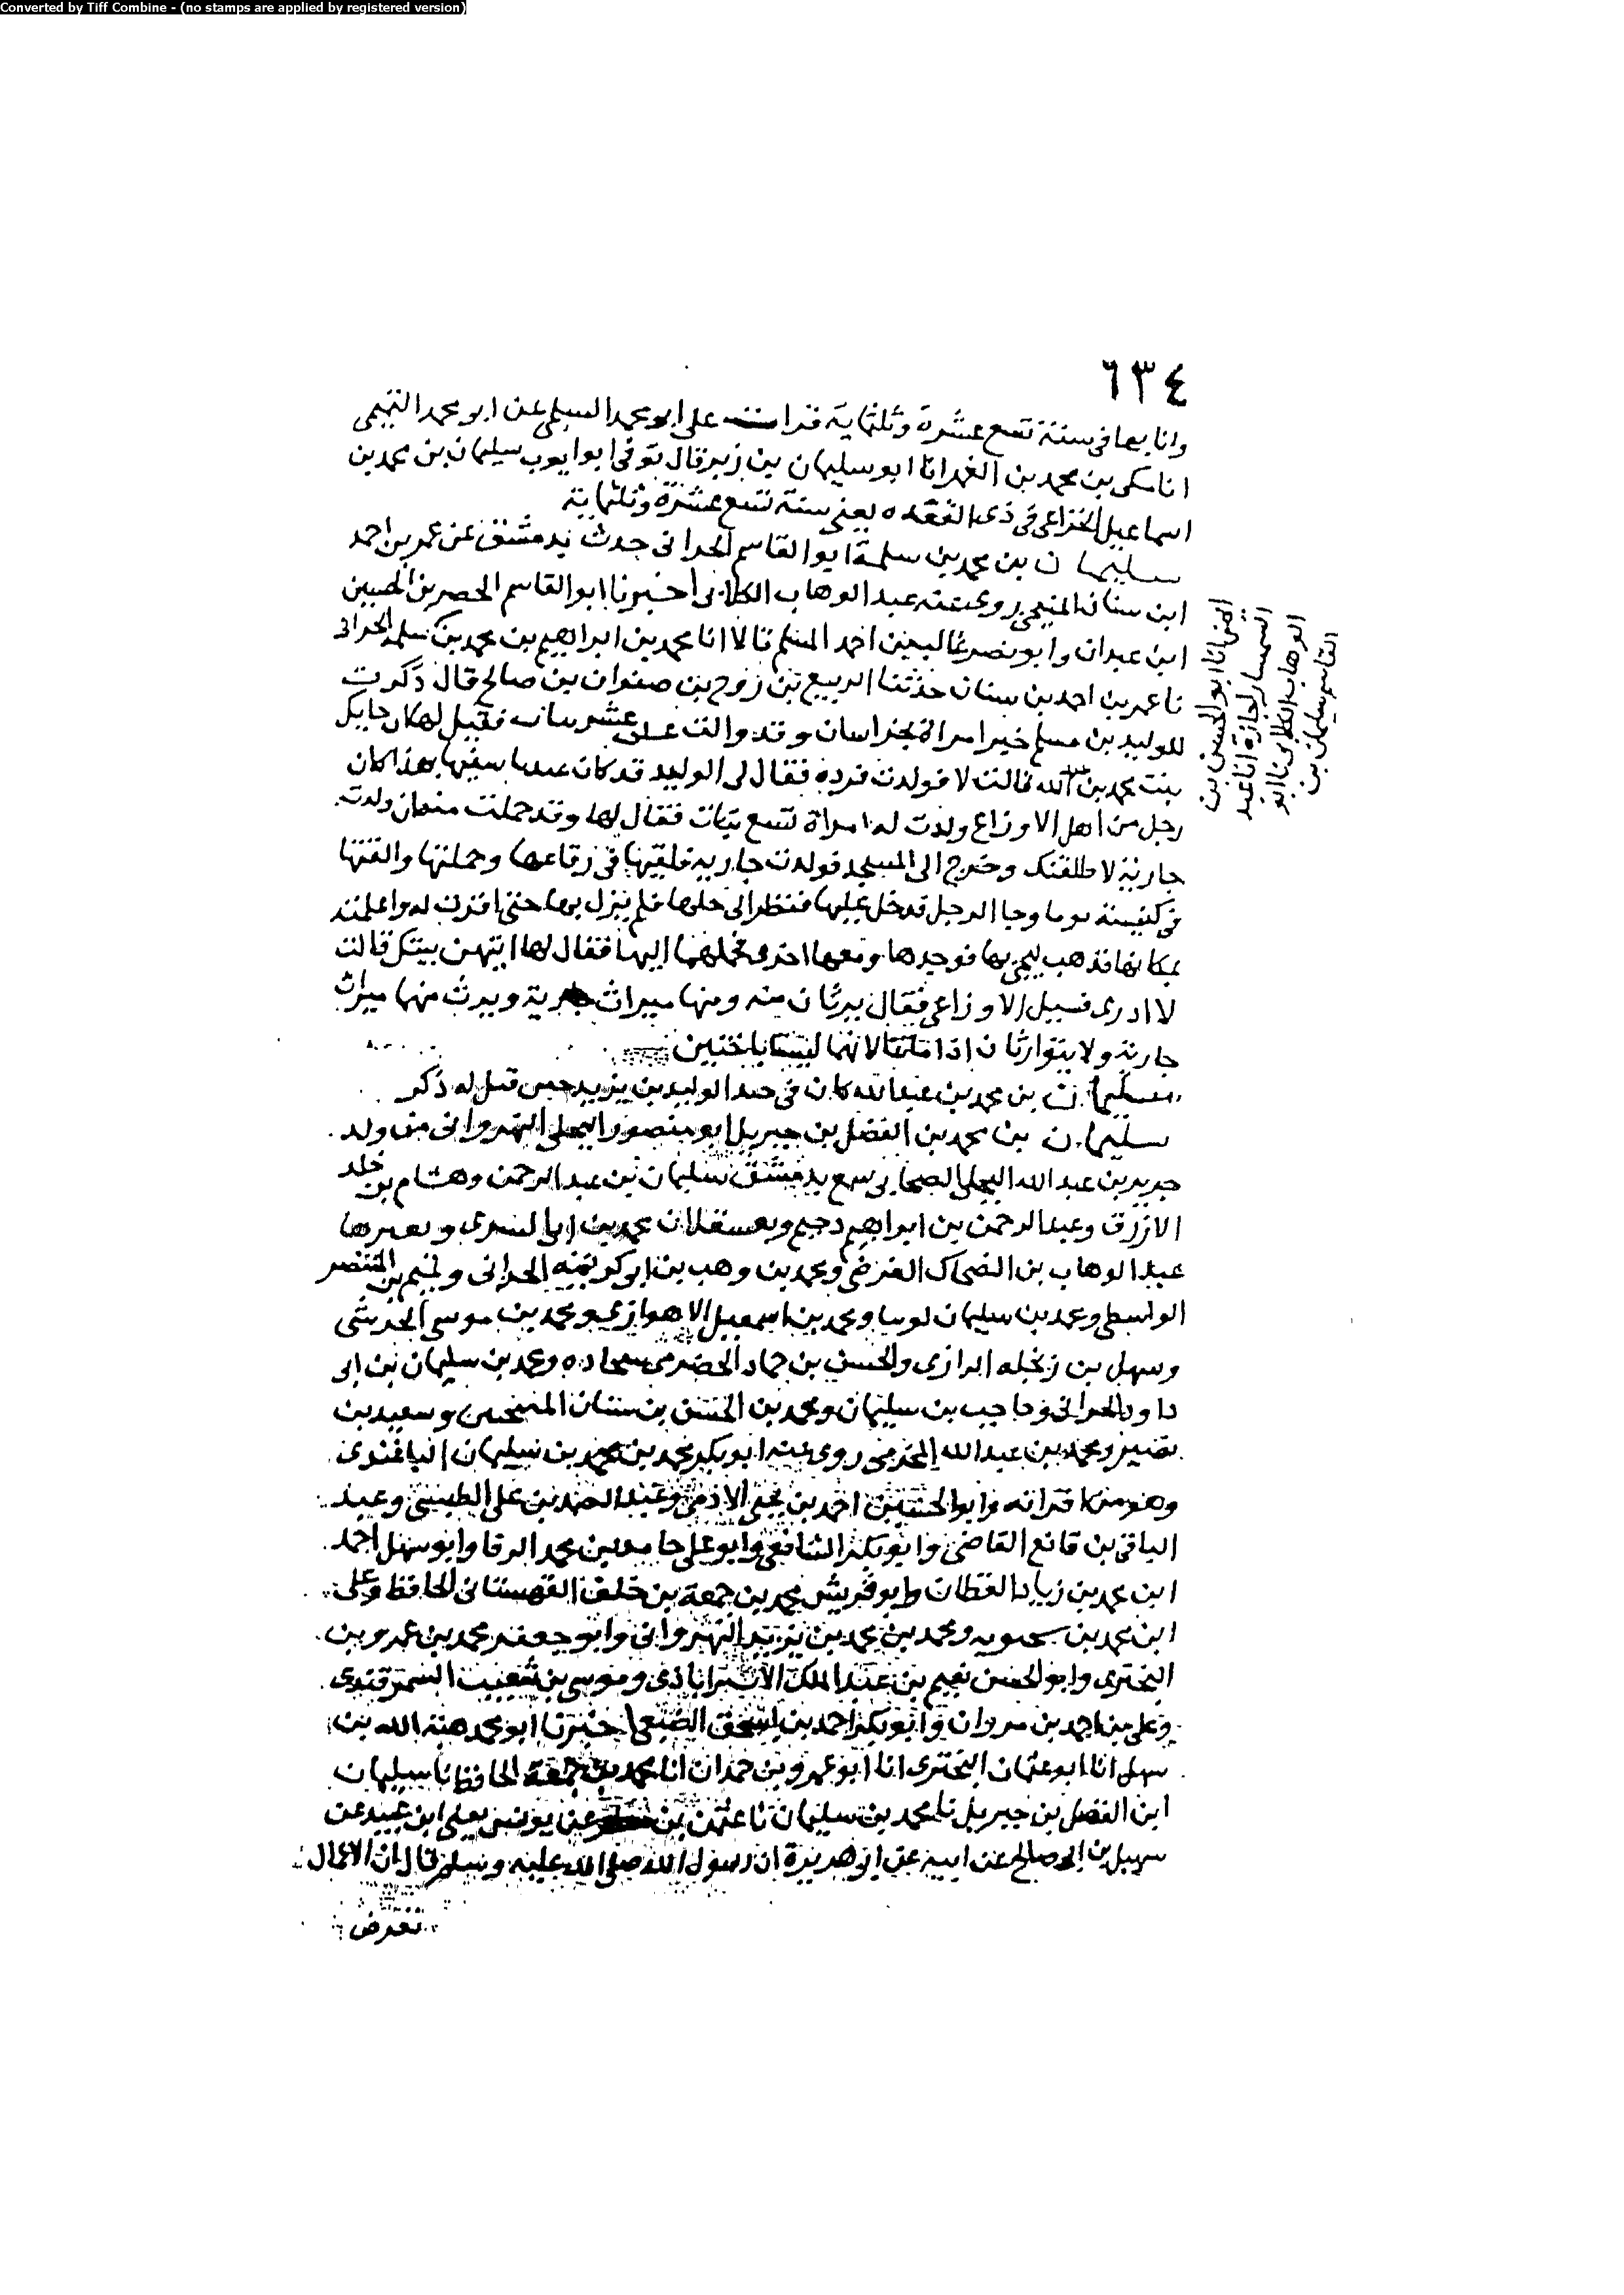 Converted by Tiff Combine - (no stamps are applied by registered version)
٦٣٤
وانا بها فى سنة تسع عشرة وثلثماية قرات على ابو محمد السلمى عن ابو محمد التميمى
انا مكى بن محمد بن الغمر انا ابو سليمان بن زبر قال توفى ابو ايوب سليمان بن محمد بن
اسماعيل الخزاعى فى ذى القعده يعنى سنة تسع عشرة وثلثماية
سليمان بن محمد بن سلمة ابو القاسم الحرانى حدث بدمشق عن عمر بن احمد
ابن سنان المنبجى روى عنه عبد الوهاب الكلابى اخبرنا ابو القاسم الخضر بن الحسين
ابن عبدان وابو نصر غالب بن احمد المسلم قالا انا محمد بن ابراهيم بن محمد بن سلمه الحرانى
نا عمر بن احمد بن سنان حدثنا الربيع بن روح بن صفوان بن صالح قال ذكرت
للوليد بن مسلم خبر امراة بخراسان وقد والت على عشر بنات فقيل لها كان حايك
بنت محمد بن الله قالت لا فولدت قرده فقال لى الوليد قد كان عندنا شبيها بهذا كان
رجل من اهل الاوزاع ولدت له امراة تسع بنات فقال لها وقد حملت منه ان ولدت
جارية لاطلقنك وخرج الى المسجد فولدت جارية فلفتها فى رقاعها وحملتها والقتها
فى كنيسة يوما وجا الرجل قد خل عليها فنظر الى حلها فلم يزل بها حتى اقرت له واعلمته
بمكانها فذهب ليجى بها فوجدها ومعها اخرى فحملهما اليها فقال لها ايتهن بيتك قالت
لا ادرى فسيل الاوزاعى فقال يرثان منه ومنها ميراث جارية ويرث منها ميراث
جارية ولا يتوارثان اذا ماتتا لانهما ليستا باختين
سليمان بن محمد بن عبد الله كان فى جند الوليد بن يزيد حين قتل له ذكر
سليمان بن محمد بن الفضل بن جبريل ابو منصور البجلى النهروانى من ولد
جرير بن عبد الله البجلى الصحابى سمع بدمشق سليمان بن عبد الرحمن وهشام بن خلد
الازرق وعبد الرحمن بن ابراهيم دحيم وبعسقلان محمد بن ابى السرى وبغيرها
عبد الوهاب بن الضحاك العرضى ومحمد بن وهب بن ابو كريمه الحرانى وتميم بن المنتصر
الواسطى ومحمد بن سليمان لوينا ومحمد بن اسمعيل الاهوازى ومحمد بن موسى الحرشى
وسهل بن زنجله الرازى والحسن بن حماد الحضرمى سجاده ومحمد بن سليمان بن ابى
داود الحرانى وحاجب بن سليمان ومحمد بن الحسن بن سنان المنبجيين وسعيد بن
نصير ومحمد بن عبد الله المخرمى روى عنه ابو بكر محمد بن محمد بن سليمان الباغندى
وهو من اقرانه وابو الحسين احمد بن يحيى الادمى وعبد الصمد بن على الطبسى وعبد
الباقى بن قانع القاضى وابو بكر الشافعى وابو على حامد بن محمد الرفا وابو سهل احمد
ابن محمد بن زياد القطان وابو قريش محمد بن جمعة بن خلف القهستانى الحافظ وعلى
ابن محمد بن سختويه ومحمد بن محمد بن يزيد النهروانى وابو جعفر محمد بن عمرو بن
البخترى وابو الحسن نعيم بن عبد الملك الاستراباذى وموسى بن شعيب السمرقندى
وعلى بن احمد بن مروان وابو بكر احمد بن اسحق الصبغى اخبرنا ابو محمد هبة الله بن
سهل انا ابو عثمان البخترى انا ابو عمرو بن حمدان انا محمد بن جمعة الحافظ نا سليمان
ابن الفضل بن جبريل نا محمد بن سليمان نا عثمن بن عن يونس يعنى ابن عبيد عن
سهيل بن ابى صالح عن ابيه عن ابو هريرة ان رسول الله صلى الله عليه وسلم قال ان الاعمال
تعرض
انا ابو الحسن بن
السمسار اجازة انا عبد
الوهاب الكلابى نا ابو
القاسم سليمان بن